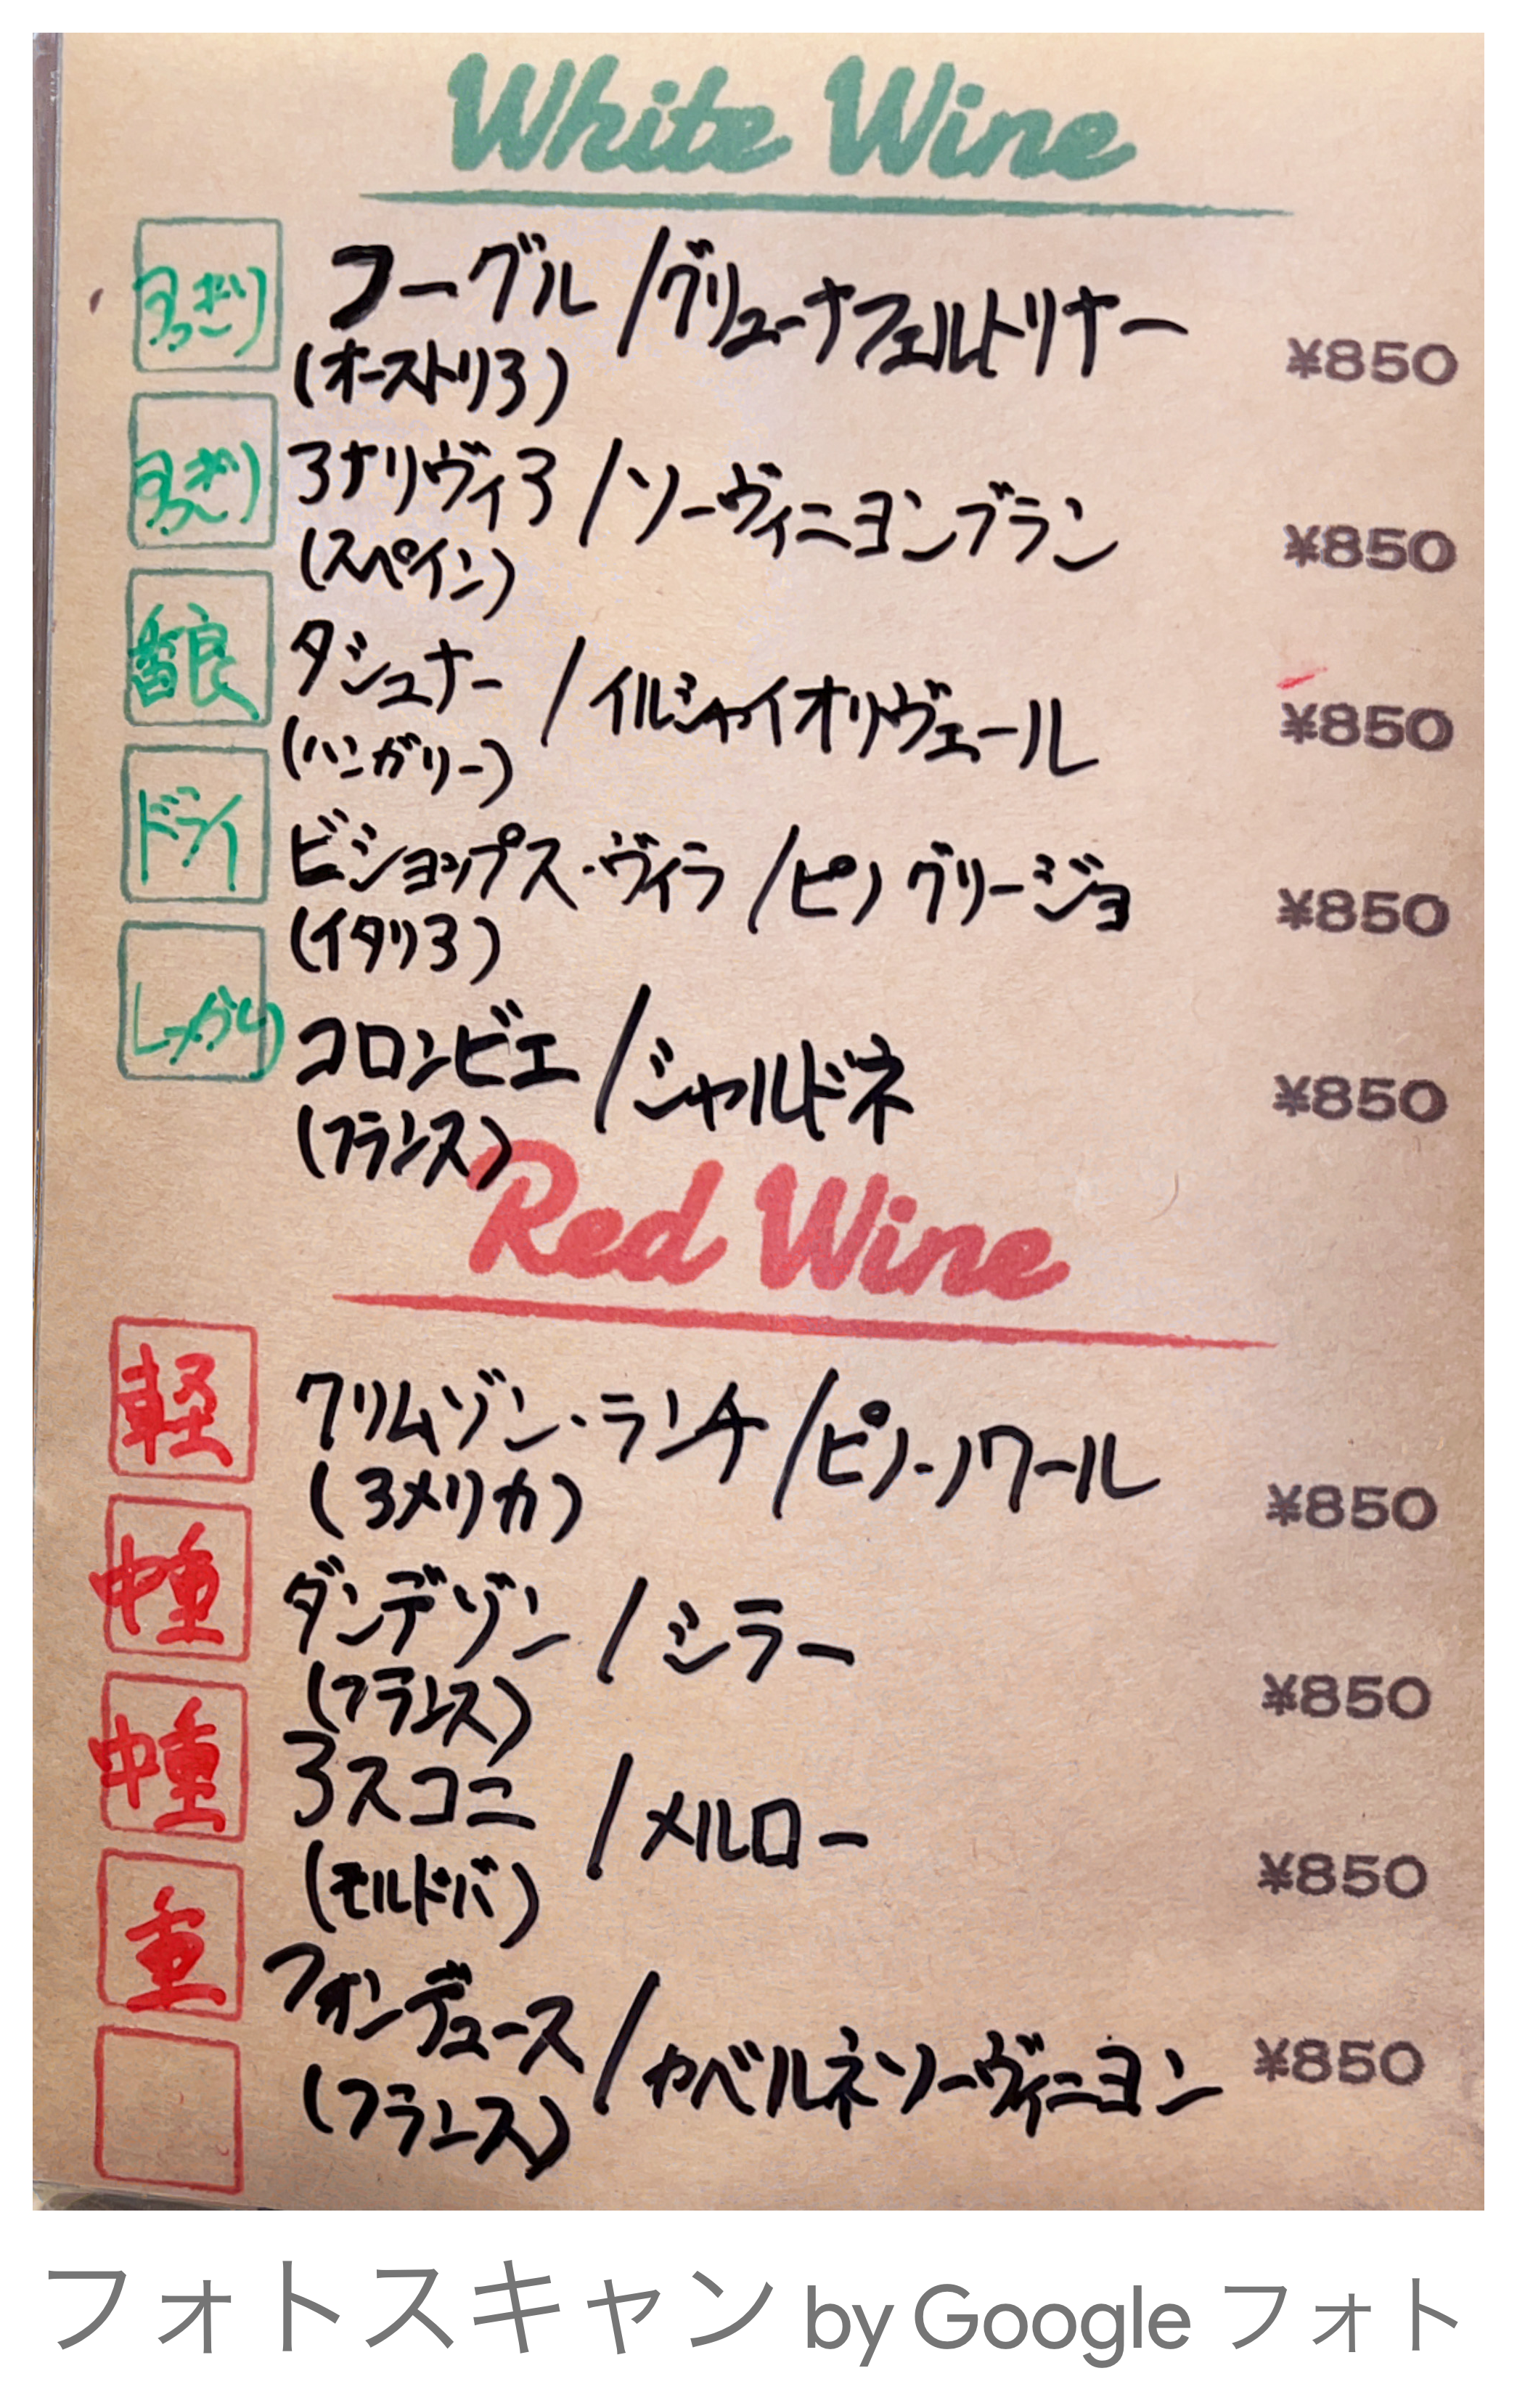 White Wine
すっきり フーグル/グリューナフェルトリナー ¥850
(オーストリア)
すっきり アナリヴィア/ソーヴィニヨンブラン ¥850
(スペイン)
ダシュナー/イルシャイオリヴェール ¥850
(ハンガリー)
ドライ ビショップス・ヴィラ/ピノグリージョ ¥850
(イタリア)
しっかり コロンビエ/シャルドネ ¥850
(フランス)
Red Wine
軽 クリムゾン・ランチ/ピノ・ノワール ¥850
(アメリカ)
中重 ダンデゾン/シラー ¥850
(フランス)
中重 アスコニ/メルロー ¥850
(モルドバ)
重 フォンデュース/カベルネソーヴィニヨン ¥850
(フランス)
フォトスキャン by Google フォト